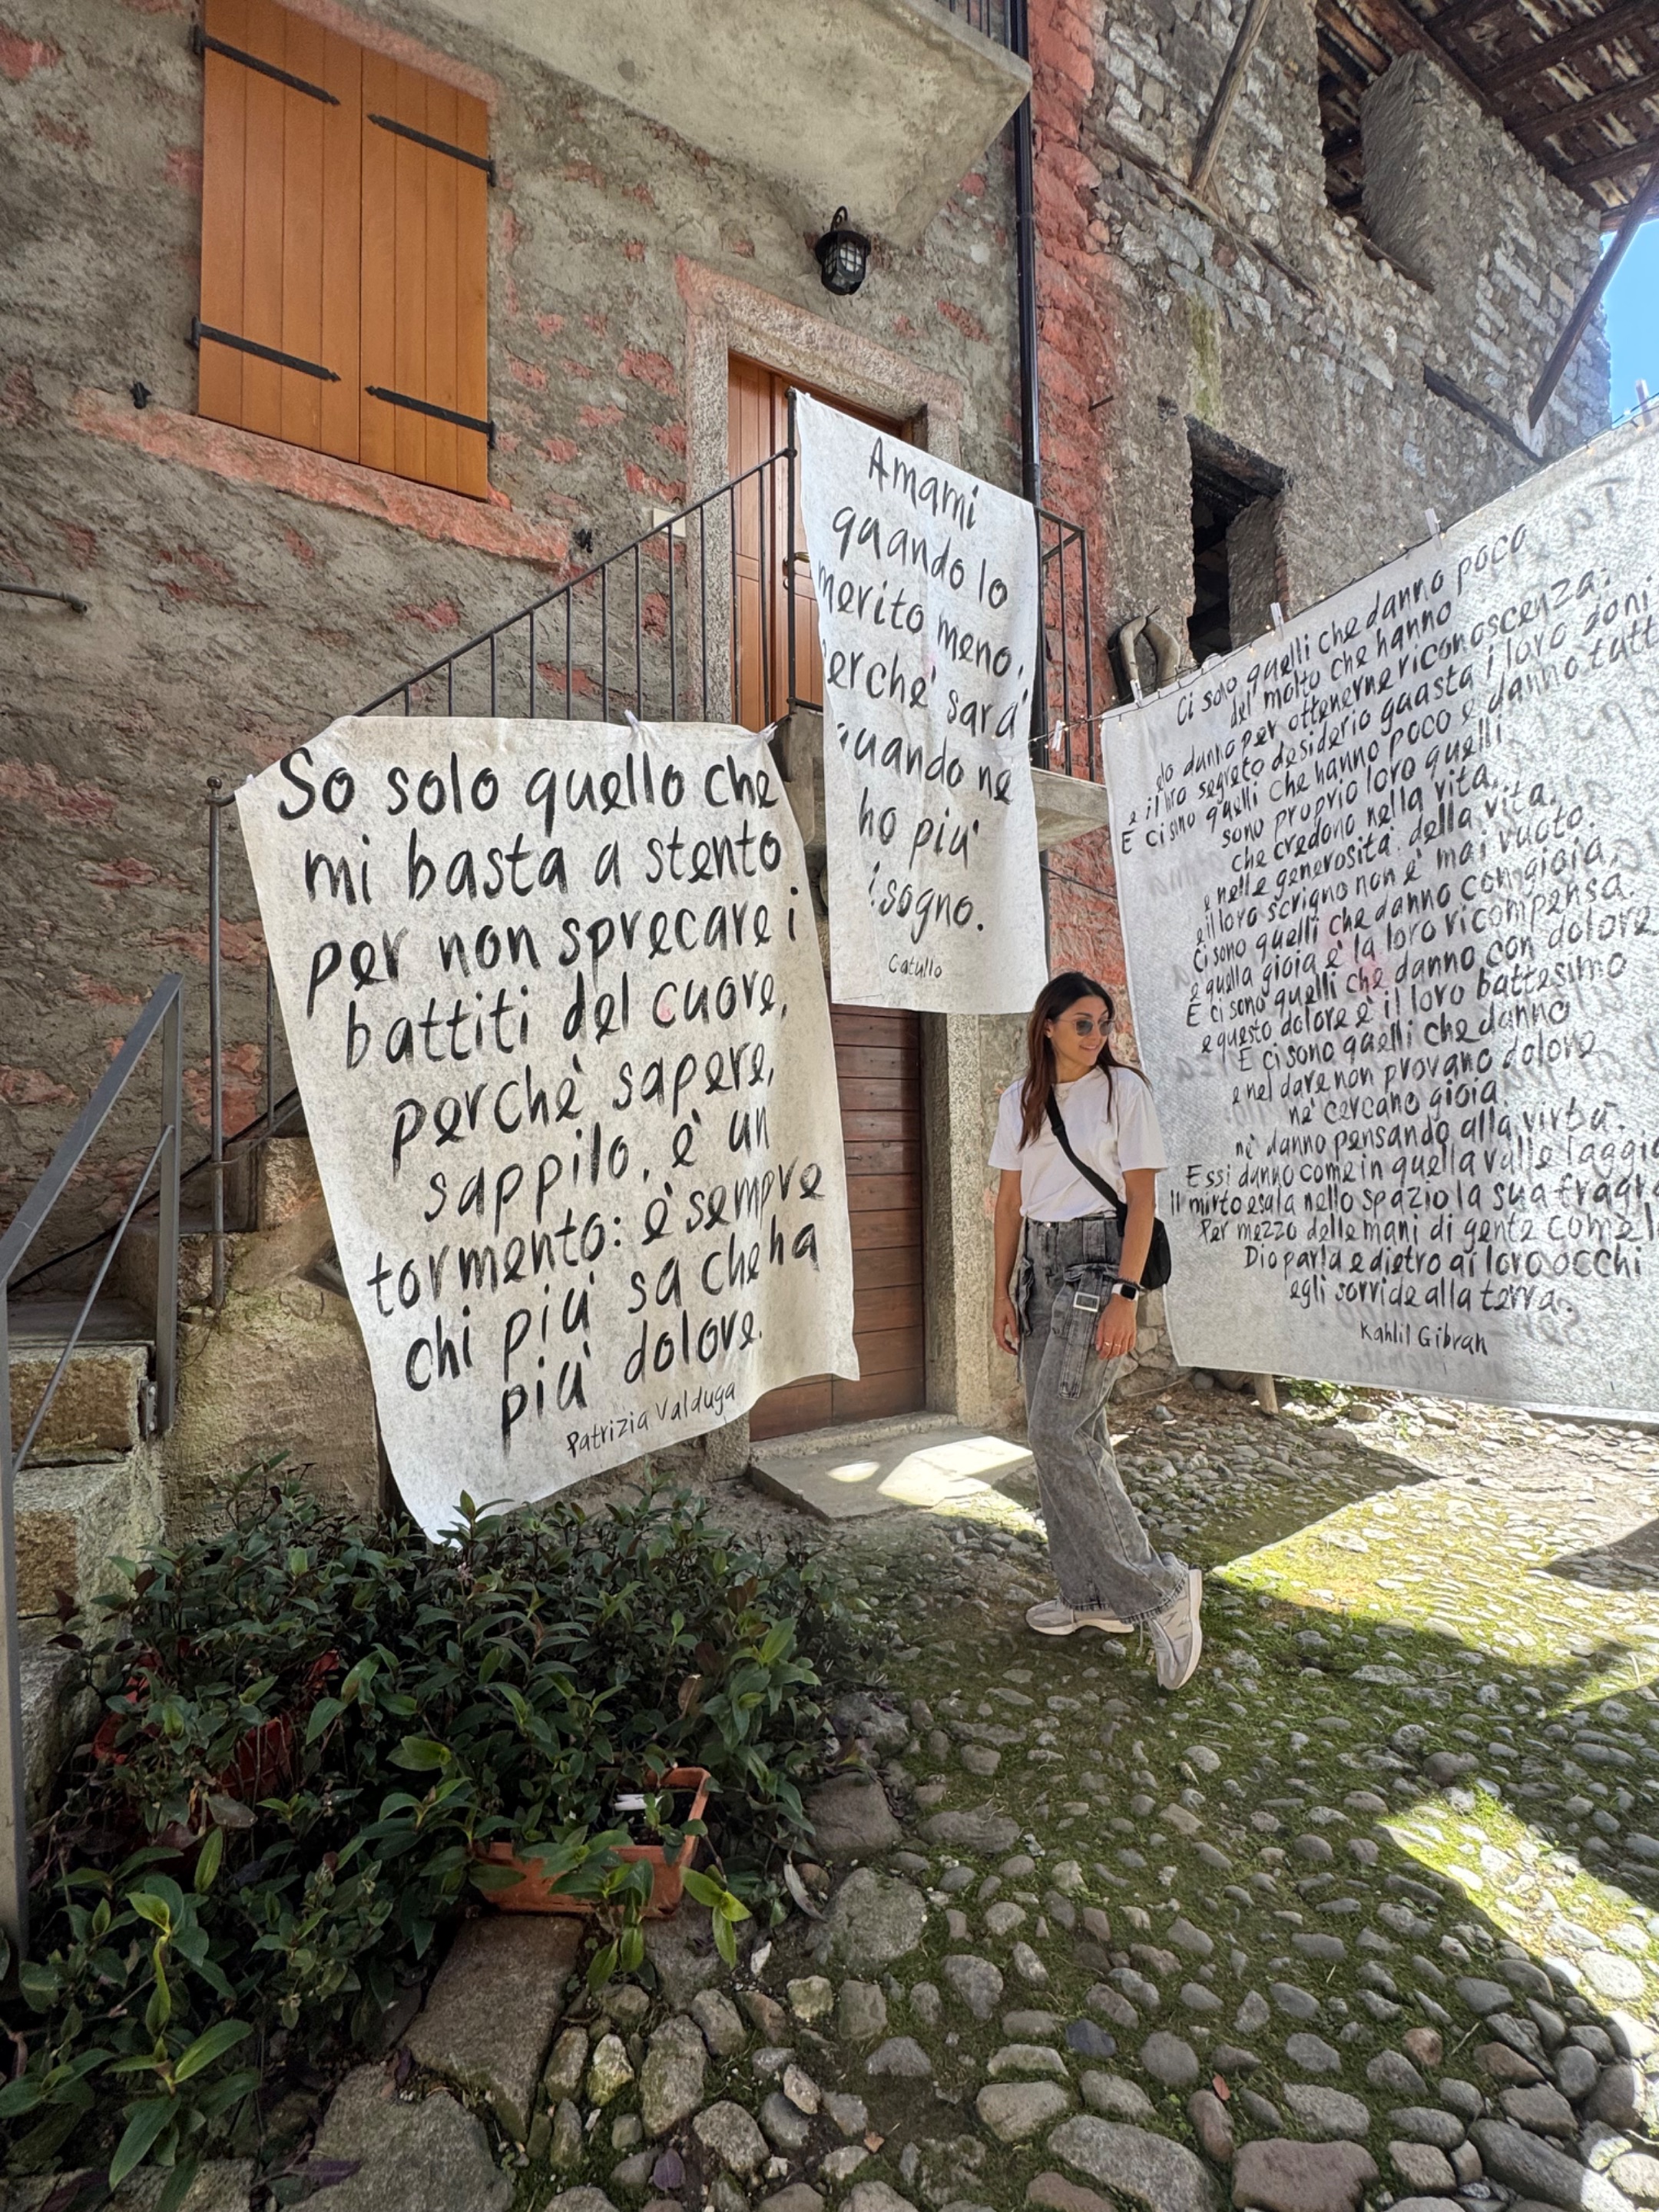 So solo quello che
mi basta a stento
per non sprecare i
battiti del cuore,
perchè sapere,
sappilo, è un
tormento: è sempre
chi più sa che ha
più dolore.
Patrizia Valduga
Amami
quando lo
merito meno,
erchè sarà
uando ne
ho più
isogno.
Catullo
Ci sono quelli che danno poco
del molto che hanno
e lo danno per ottenerne riconoscenza:
e il loro segreto desiderio guasta i loro doni
E ci sono quelli che hanno poco e danno tutt
sono proprio loro quelli
che credono nella vita,
e nelle generosità della vita,
e il loro scrigno non è mai vuoto.
Ci sono quelli che danno con gioia,
e quella gioia è la loro ricompensa.
E ci sono quelli che danno con dolore
e questo dolore è il loro battesimo
E ci sono quelli che danno
e nel dare non provano dolore
nè cercano gioia
nè danno pensando alla virtù.
Essi danno come in quella valle laggiù
Il mirto esala nello spazio la sua fragra
Per mezzo delle mani di gente come l
Dio parla e dietro ai loro occhi
egli sorride alla terra.
Kahlil Gibran